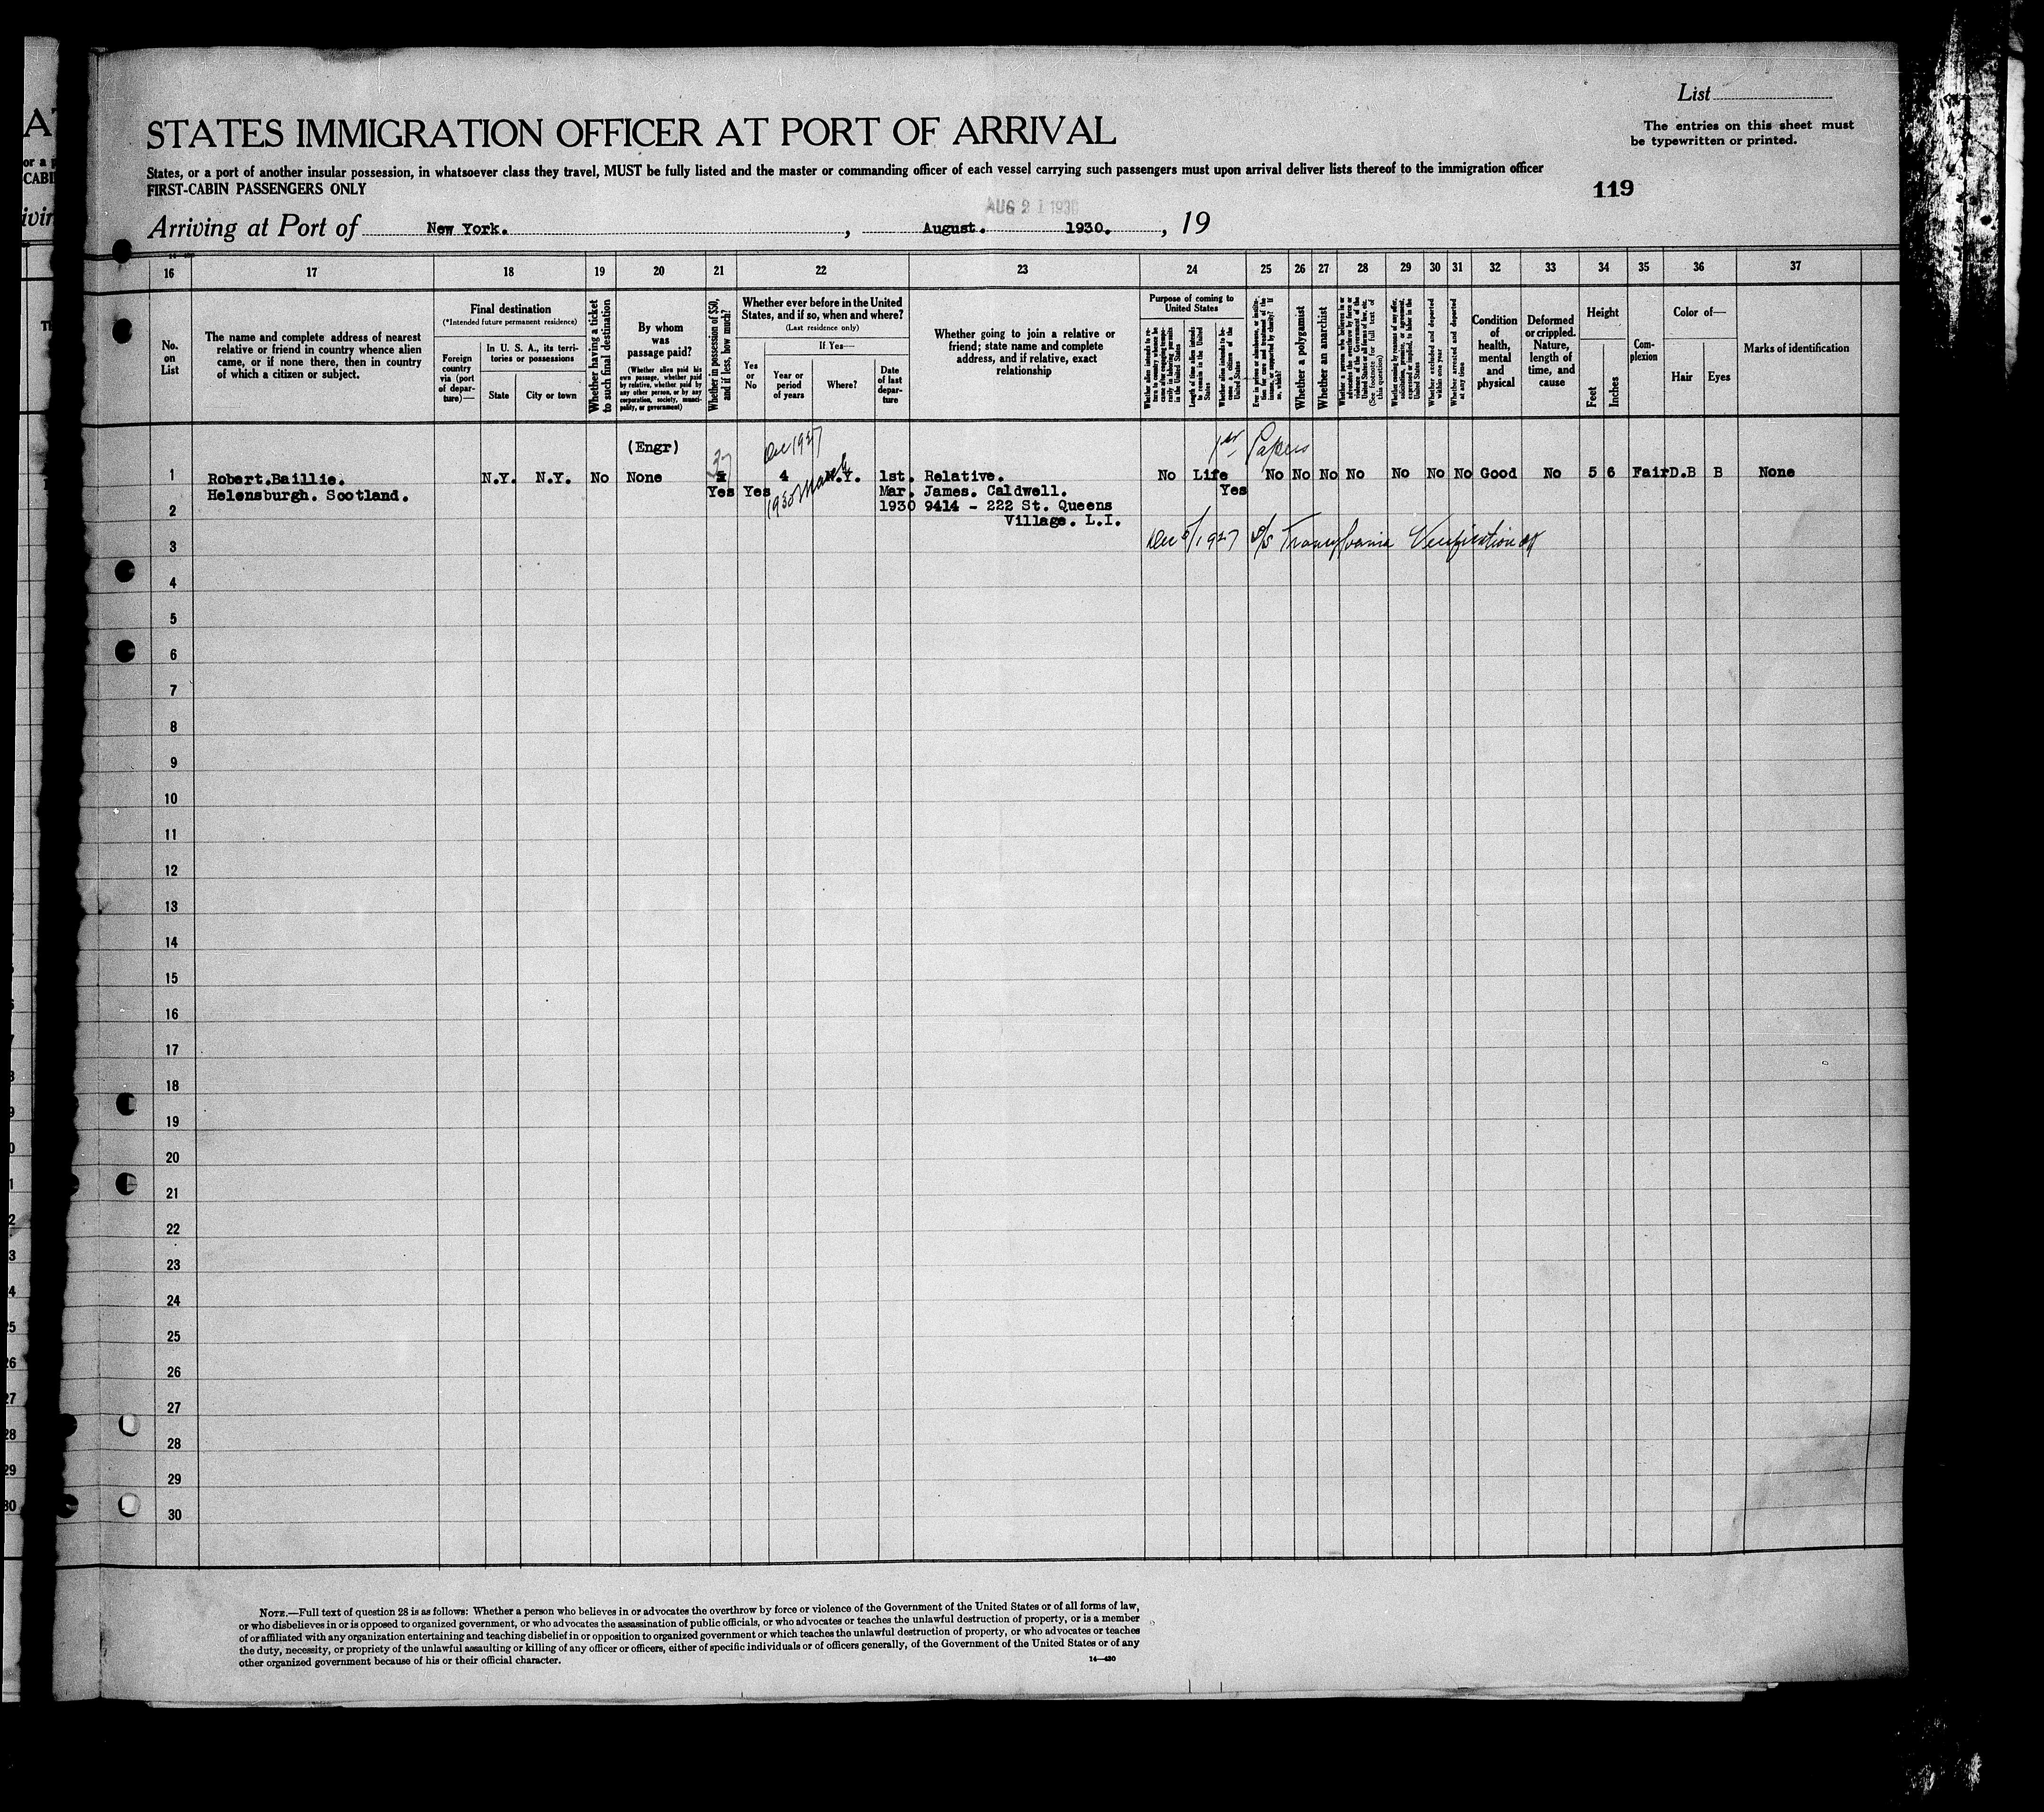 List
STATES IMMIGRATION OFFICER AT PORT OF ARRIVAL
The entries on this sheet must
be typewritten or printed.
States, or a port of another insular possession, in whatsoever class they travel, MUST be fully listed and the master or commanding officer of each vessel carrying such passengers must upon arrival deliver lists thereof to the immigration officer
FIRST-CABIN PASSENGERS ONLY
119
AUG 21 1930
Arriving at Port of New York. , August. 1930. , 19
16 17 18 19 20 21 22 23 24 25 26 27 28 29 30 31 32 33 34 35 36 37
No.
on
List
The name and complete address of nearest
relative or friend in country whence alien
came, or if none there, then in country
of which a citizen or subject.
Final destination
(*Intended future permanent residence)
Foreign
country
via (port
of depar-
ture)—
In U. S. A., its terri-
tories or possessions
State
City or town
Whether having a ticket
to such final destination
By whom
was
passage paid?
(Whether alien paid his
own passage, whether paid
by relative, whether paid by
any other person, or by any
corporation, society, munici-
pality, or government)
Whether in possession of $50,
and if less, how much?
Whether ever before in the United
States, and if so, when and where?
(Last residence only)
Yes
or
No
If Yes—
Year or
period
of years
Where?
Date
of last
depar-
ture
Whether going to join a relative or
friend; state name and complete
address, and if relative, exact
relationship
Purpose of coming to
United States
Whether alien intends to re-
turn to country whence he
came after engaging tempo-
rarily in laboring pursuits
in the United States
Length of time alien intends
to remain in the United
States
Whether alien intends to be-
come a citizen of the
United States
Ever in prison or almshouse, or institu-
tion for care and treatment of the
insane, or supported by charity? If
so, which?
Whether a polygamist
Whether an anarchist
Whether a person who believes in or
advocates the overthrow by force or
violence of the Government of the
United States or all forms of law, etc.
(See footnote for full text of
this question)
Whether coming by reasons of any offer,
solicitation, promise, or agreement,
expressed or implied, to labor in the
United States
Whether excluded and deported
within one year
Whether arrested and deported
at any time
Condition
of
health,
mental
and
physical
Deformed
or crippled.
Nature,
length of
time, and
cause
Height
Feet
Inches
Com-
plexion
Color of—
Hair
Eyes
Marks of identification
(Engr) Dec 1927 1st Papers
1 Robert.Baillie. N.Y. N.Y. No None 4 N.Y. 1st. Relative. No Life No No No No No No No Good No 5 6 Fair D.B B None
Helensburgh. Scotland. Yes Yes 1930 March Mar. James. Caldwell. Yes
2 1930 9414 - 222 St. Queens
Village. L.I.
3 Dec 5/1927 S/S Transylvania Verification
4
5
6
7
8
9
10
11
12
13
14
15
16
17
18
19
20
21
22
23
24
25
26
27
28
29
30
NOTE.—Full text of question 28 is as follows: Whether a person who believes in or advocates the overthrow by force or violence of the Government of the United States or of all forms of law,
or who disbelieves in or is opposed to organized government, or who advocates the assassination of public officials, or who advocates or teaches the unlawful destruction of property, or is a member
of or affiliated with any organization entertaining and teaching disbelief in or opposition to organized government or which teaches the unlawful destruction of property, or who advocates or teaches
the duty, necessity, or propriety of the unlawful assaulting or killing of any officer or officers, either of specific individuals or of officers generally, of the Government of the United States or of any
other organized government because of his or their official character.
14—430